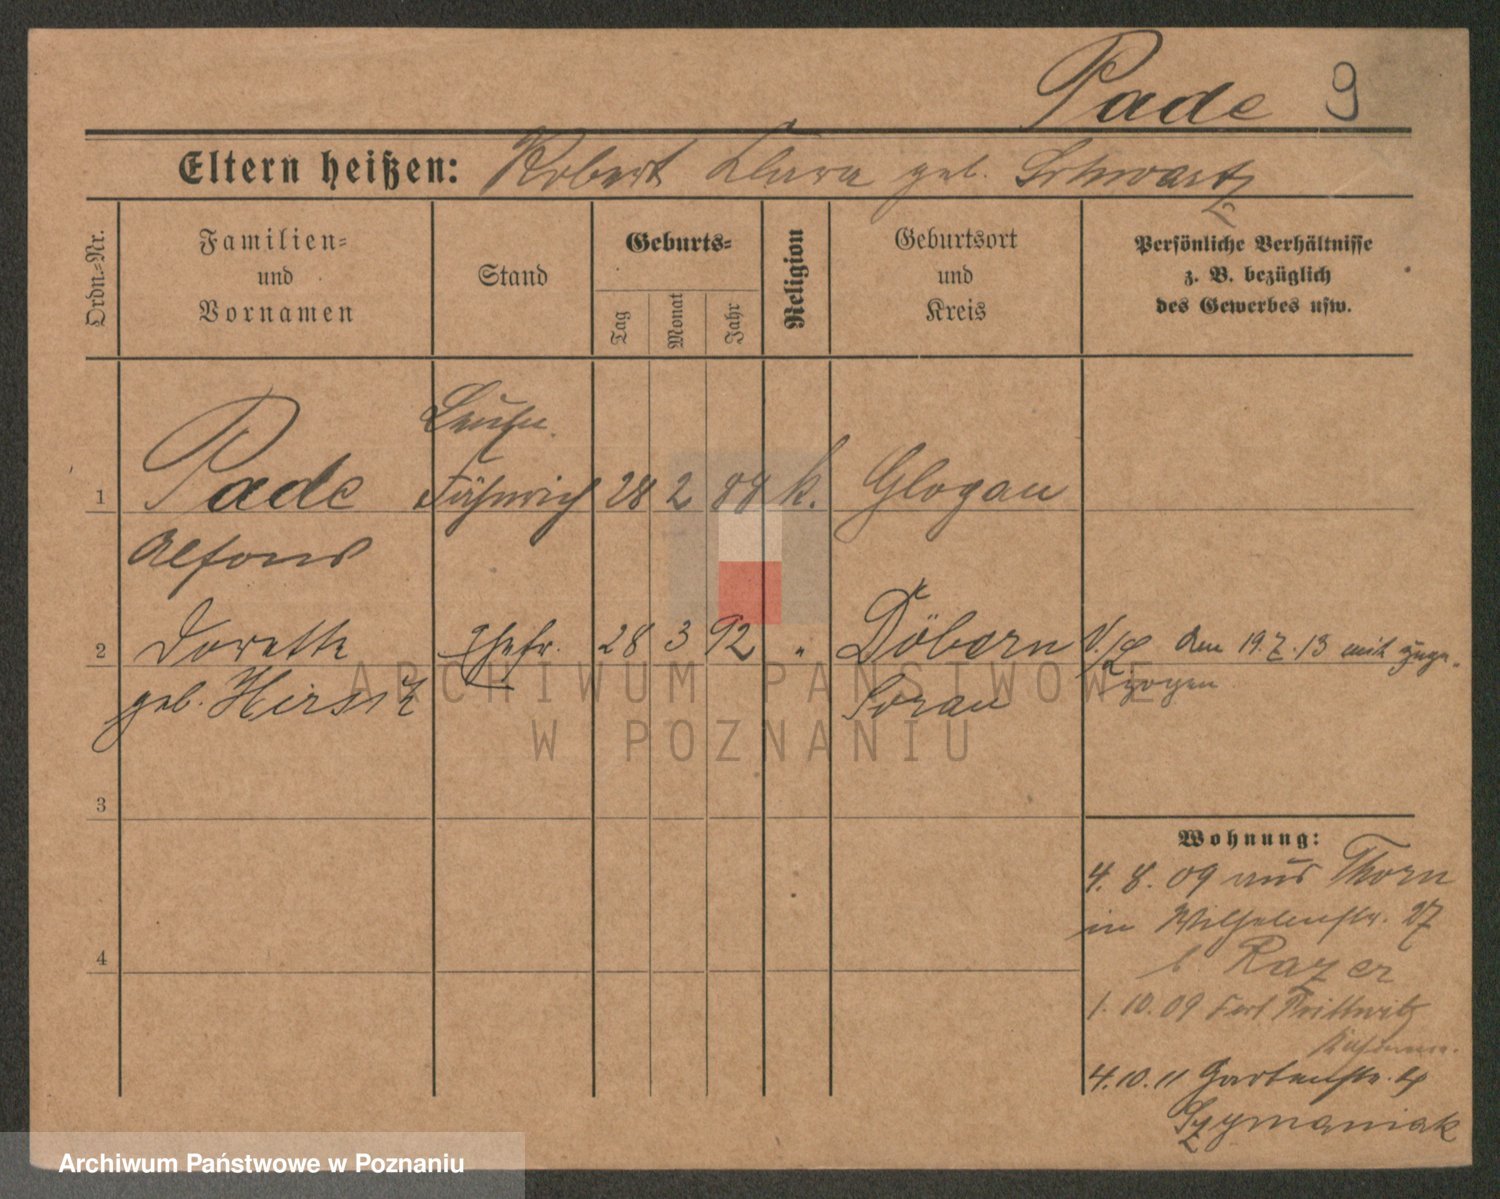 Pade 9
Eltern heißen: Robert Klara geb. Schwartz
Ordn.=Nr.
Familien=
und
Vornamen
Stand
Geburts=
Tag
Monat
Jahr
Religion
Geburtsort
und
Kreis
Persönliche Verhältnisse
z. B. bezüglich
des Gewerbes usw.
Leutn.
1 Pade Fähnrich 28 2 88 k. Glogau
Alfons
2 Dorothe Ehefr. 28 3 92 " Döbern den 19.7.13 mit zuge-
geb. Hirsch Sorau zogen
3
4
Wohnung:
4. 8. 09 aus Thorn
in Wilhelmstr. 27
b Razer
1. 10. 09 Fort Prittwitz
4.10.11 Gartenstr.
Szymaniak
ARCHIWUM PAŃSTWOWE
W POZNANIU
Archiwum Państwowe w Poznaniu